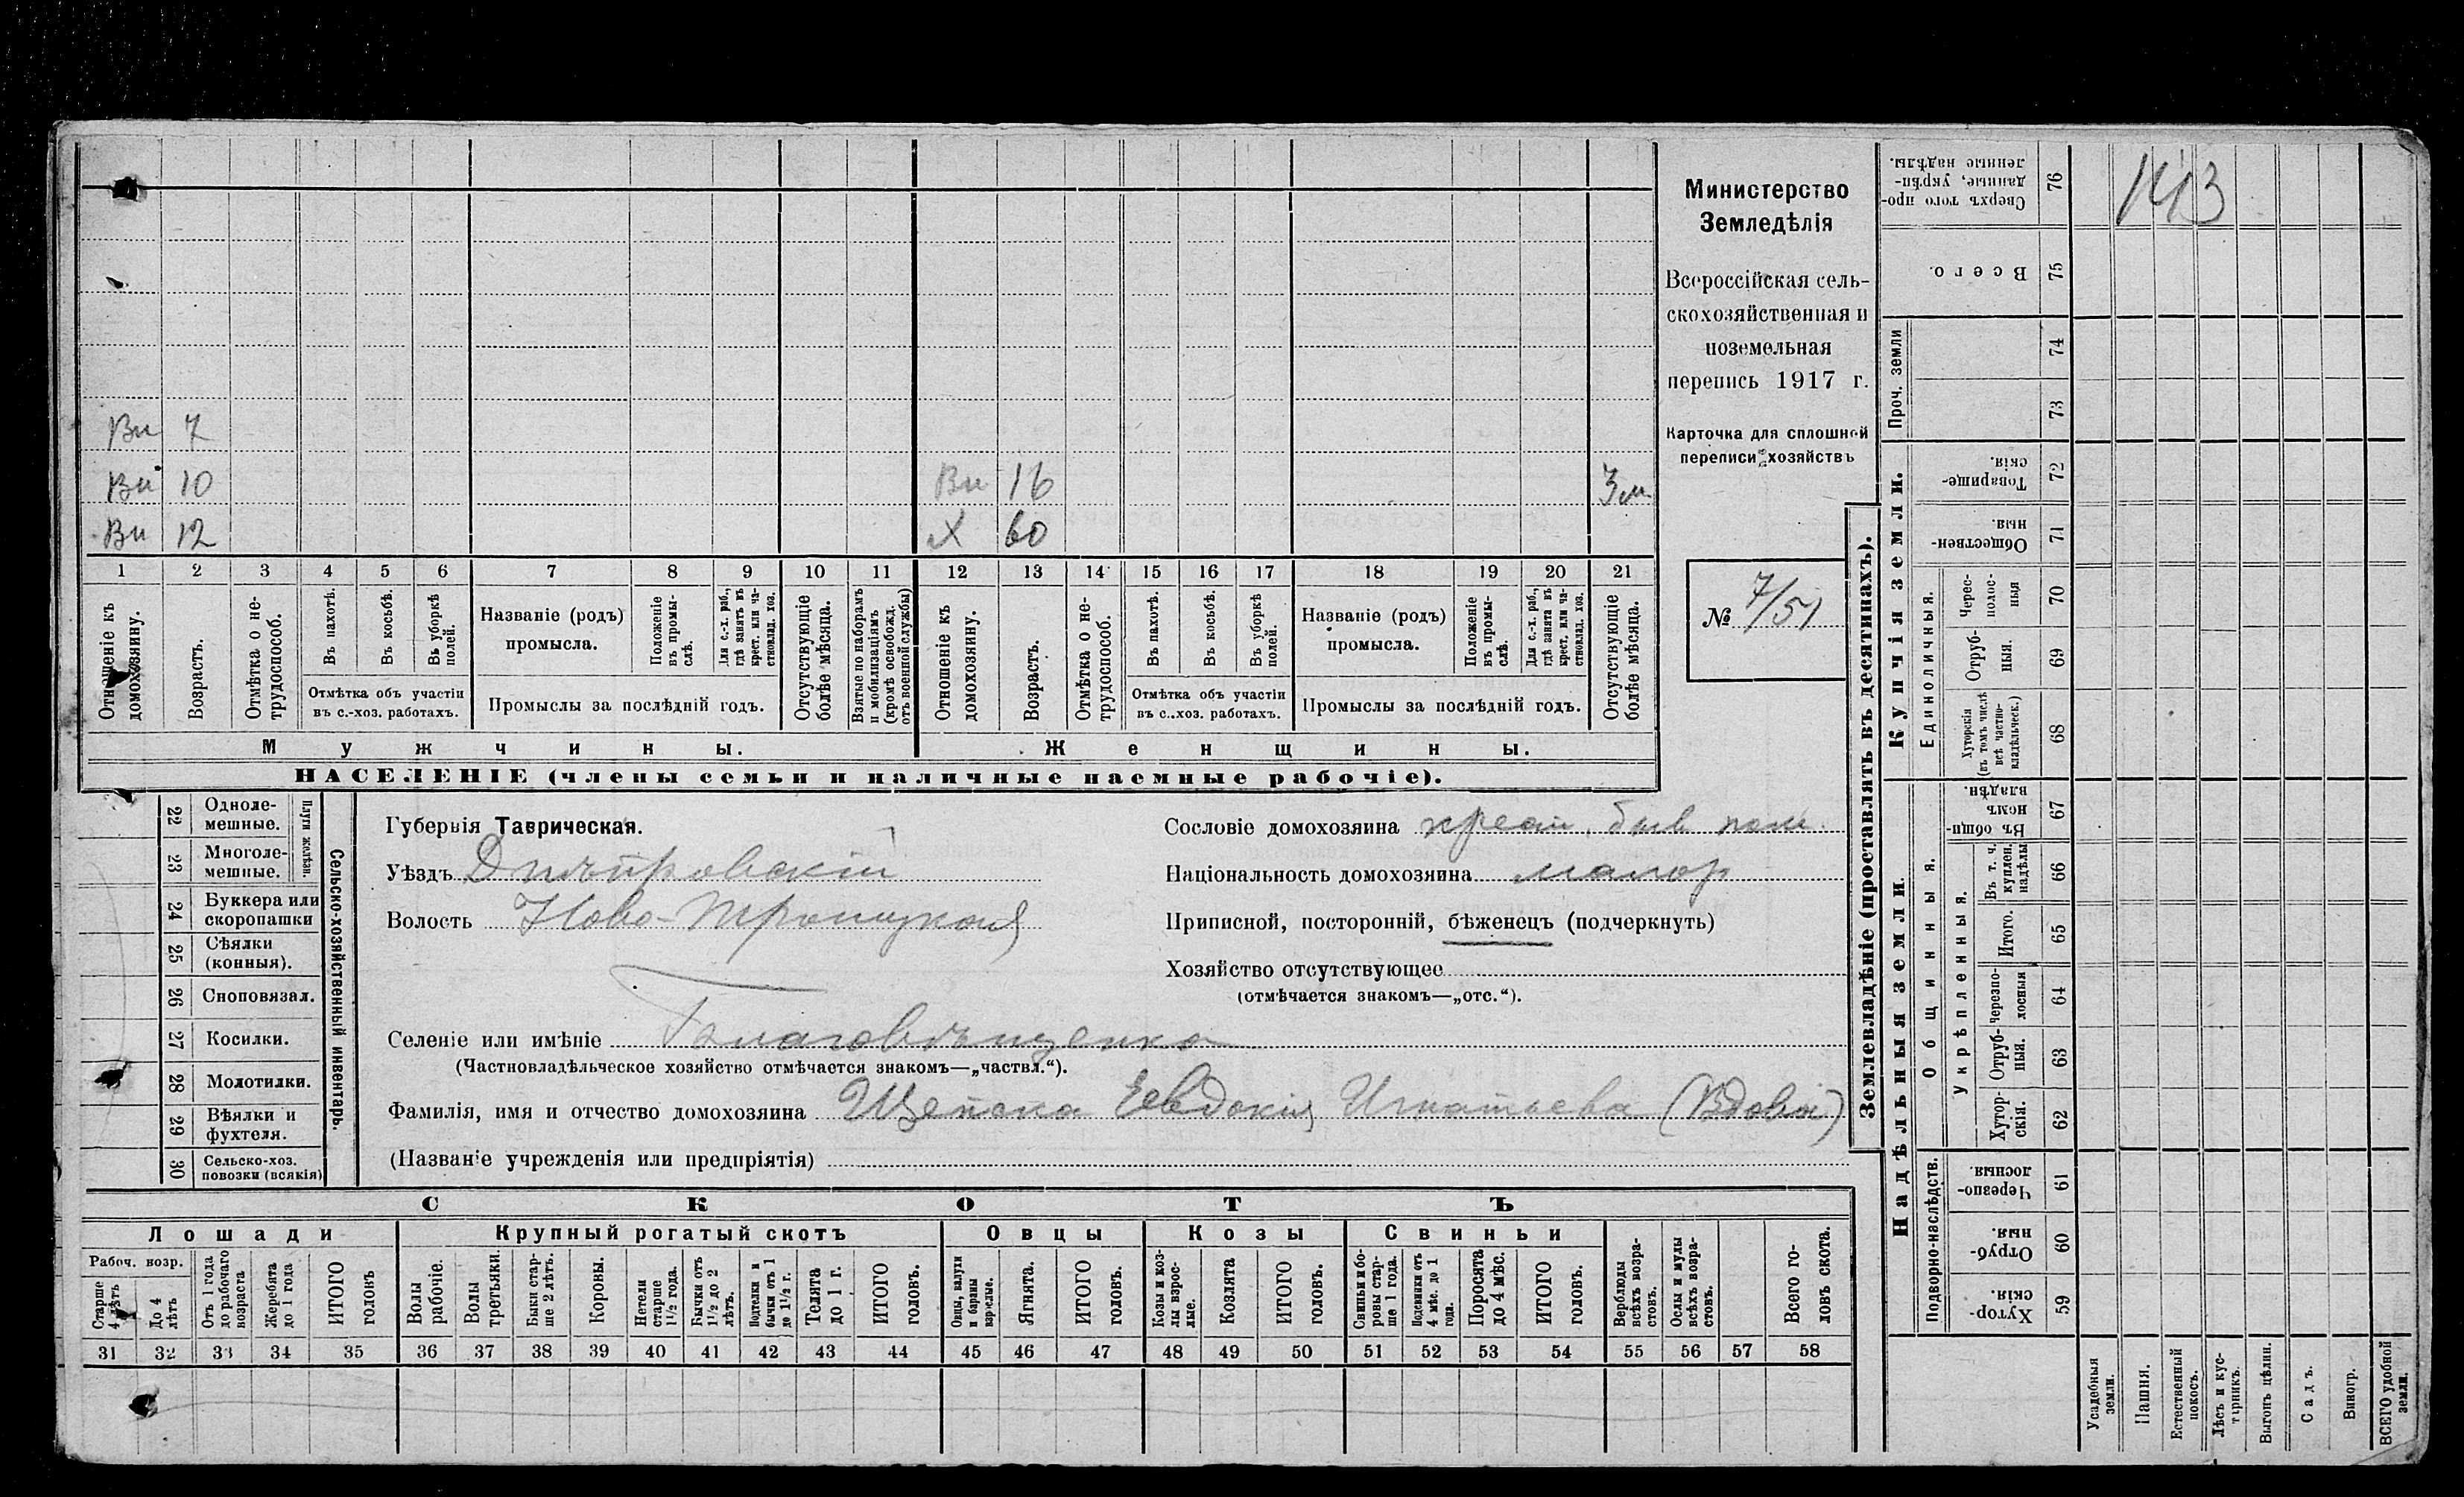 Ви 7
Ви 10 Ви 16 3 м.
Ви 12 Х 60
1 2 3 4 5 6 7 8 9 10 11 12 13 14 15 16 17 18 19 20 21
Отношеніе къ домохозяину.
Возрастъ.
Отмѣтка о не-
трудоспособ.
Въ пахотѣ.
Въ косьбѣ.
Въ уборкѣ
полей.
Отмѣтка объ участіи
въ с.-хоз. работахъ.
Названіе (родъ)
промысла.
Положеніе
въ промы-
слѣ.
Для с.-х. раб.,
гдѣ занятъ въ
крест. или ча-
стновлад. хоз.
Промыслы за послѣдній годъ.
Отсутствующіе
болѣе мѣсяца.
Взятые по наборамъ
и мобилизаціямъ
(кромѣ освобожд.
отъ военной службы)
Отношеніе къ
домохозяину.
Возрастъ.
Отмѣтка о не-
трудоспособ.
Въ пахотѣ.
Въ косьбѣ.
Въ уборкѣ
полей.
Отмѣтка объ участіи
въ с.-хоз. работахъ.
Названіе (родъ)
промысла.
Положеніе
въ промы-
слѣ.
Для с.-х. раб.,
гдѣ занята въ
крест. или ча-
стновлад. хоз.
Промыслы за послѣдній годъ.
Отсутствующіе
болѣе мѣсяца.
Мужчины. Женщины.
НАСЕЛЕНІЕ (члены семьи и наличные наемные рабочіе).
Министерство
Земледѣлія
Всероссійская сель-
скохозяйственная и
поземельная
перепись 1917 г.
Карточка для сплошной
переписи хозяйствъ
№ 7/51
22 Одноле-
мешные.
23 Многоле-
мешные.
Плуги желѣзн.
24 Буккера или
скоропашки
25 Сѣялки
(конныя).
26 Сноповязал.
27 Косилки.
28 Молотилки.
29 Вѣялки и
фухтеля.
30 Сельско-хоз.
повозки (всякія)
Сельско-хозяйственный инвентарь.
Губернія Таврическая.
Уѣздъ Днѣпровскій
Волость Ново-Троицкая
Селеніе или имѣніе
(Частновладѣльческое хозяйство отмѣчается знакомъ—„частвл.“).
Фамилія, имя и отчество домохозяина Евдокія Игнатьева (Вдова)
(Названіе учрежденія или предпріятія)
Сословіе домохозяина крест. быв пом.
Національность домохозяина малор
Приписной, посторонній, бѣженецъ (подчеркнуть)
Хозяйство отсутствующее
(отмѣчается знакомъ—„отс.“).
СКОТЪ
Лошади Крупный рогатый скотъ Овцы Козы Свиньи
Рабоч. возр.
Старше
4 лѣтъ
До 4
лѣтъ
Отъ 1 года
до рабочаго
возраста
Жеребята
до 1 года
ИТОГО
головъ
Волы
рабочіе.
Волы
третьяки.
Быки стар-
ше 2 лѣтъ.
Коровы.
Нетели
старше
1½ года.
Бычки отъ
1½ до 2
лѣтъ.
Подтелки и
бычки отъ 1
до 1½ г.
Телята
до 1 г.
ИТОГО
головъ.
Овцы, валухи
и бараны
взрослые.
Ягнята.
ИТОГО
головъ.
Козы и коз-
лы взрос-
лые.
Козлята
ИТОГО
головъ.
Свиньи и бо-
ровы стар-
ше 1 года.
Подсвинки отъ
4 мѣс. до 1
года.
Поросята
до 4 мѣс.
ИТОГО
головъ.
Верблюды
всѣхъ возра-
стовъ.
Ослы и мулы
всѣхъ возра-
стовъ.
Всего го-
ловъ скота.
31 32 33 34 35 36 37 38 39 40 41 42 43 44 45 46 47 48 49 50 51 52 53 54 55 56 57 58
Землевладѣніе (проставлять въ десятинахъ).
Купчія земли.
Надѣльныя земли.
Сверхъ того про-
данные, укрѣп-
ленные надѣлы.
76
143
Всего.
75
Проч. земли
74
73
Товарище-
скія.
72
Обществен-
ныя.
71
Единоличныя.
Черес-
полос-
ныя
70
Отруб-
ныя.
69
Хуторскія
(въ томъ числѣ
всѣ частно-
владѣльческ.)
68
Общинныя.
Въ общин-
номъ
владѣн.
67
Укрѣпленныя.
Въ т. ч.
куплен.
надѣлы
66
Итого.
65
Черезпо-
лосныя
64
Отруб-
ныя.
63
Хутор-
скія.
62
Подворно-наслѣдств.
Черезпо-
лосныя
61
Отруб-
ныя.
60
Хутор-
скія.
59
Усадебныя
земли.
Пашня.
Естественный
покосъ.
Лѣсъ и кус-
тарникъ.
Выгонъ цѣлин.
Садъ.
Виногр.
ВСЕГО удобной
земли.